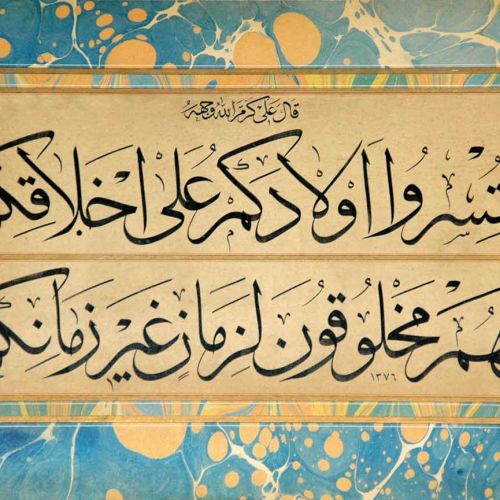 قال علي كرم الله وجهه
تقسروا اولادكم على اخلاقكم
هم مخلوقون لزمان غير زمانكم
١٣٧٦